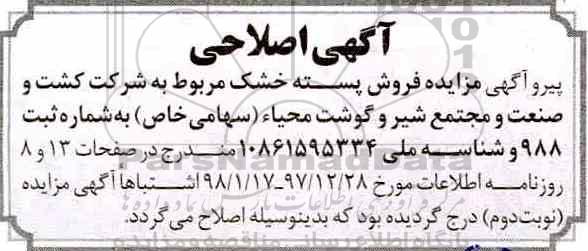 آگهی اصلاحی
پیرو آگهی مزایده فروش پسته خشک مربوط به شرکت کشت و
صنعت و مجتمع شیر و گوشت محیاء (سهامی خاص) به شماره ثبت
۹۸۸ و شناسه ملی ۱۰۸۶۱۵۹۵۳۳۴ مندرج در صفحات ۱۳ و ۸
روزنامه اطلاعات مورخ ۹۷/۱۲/۲۸-۹۸/۱/۱۷ اشتباها آگهی مزایده
(نوبت دوم) درج گردیده بود که بدینوسیله اصلاح می گردد.
ParsNamadData